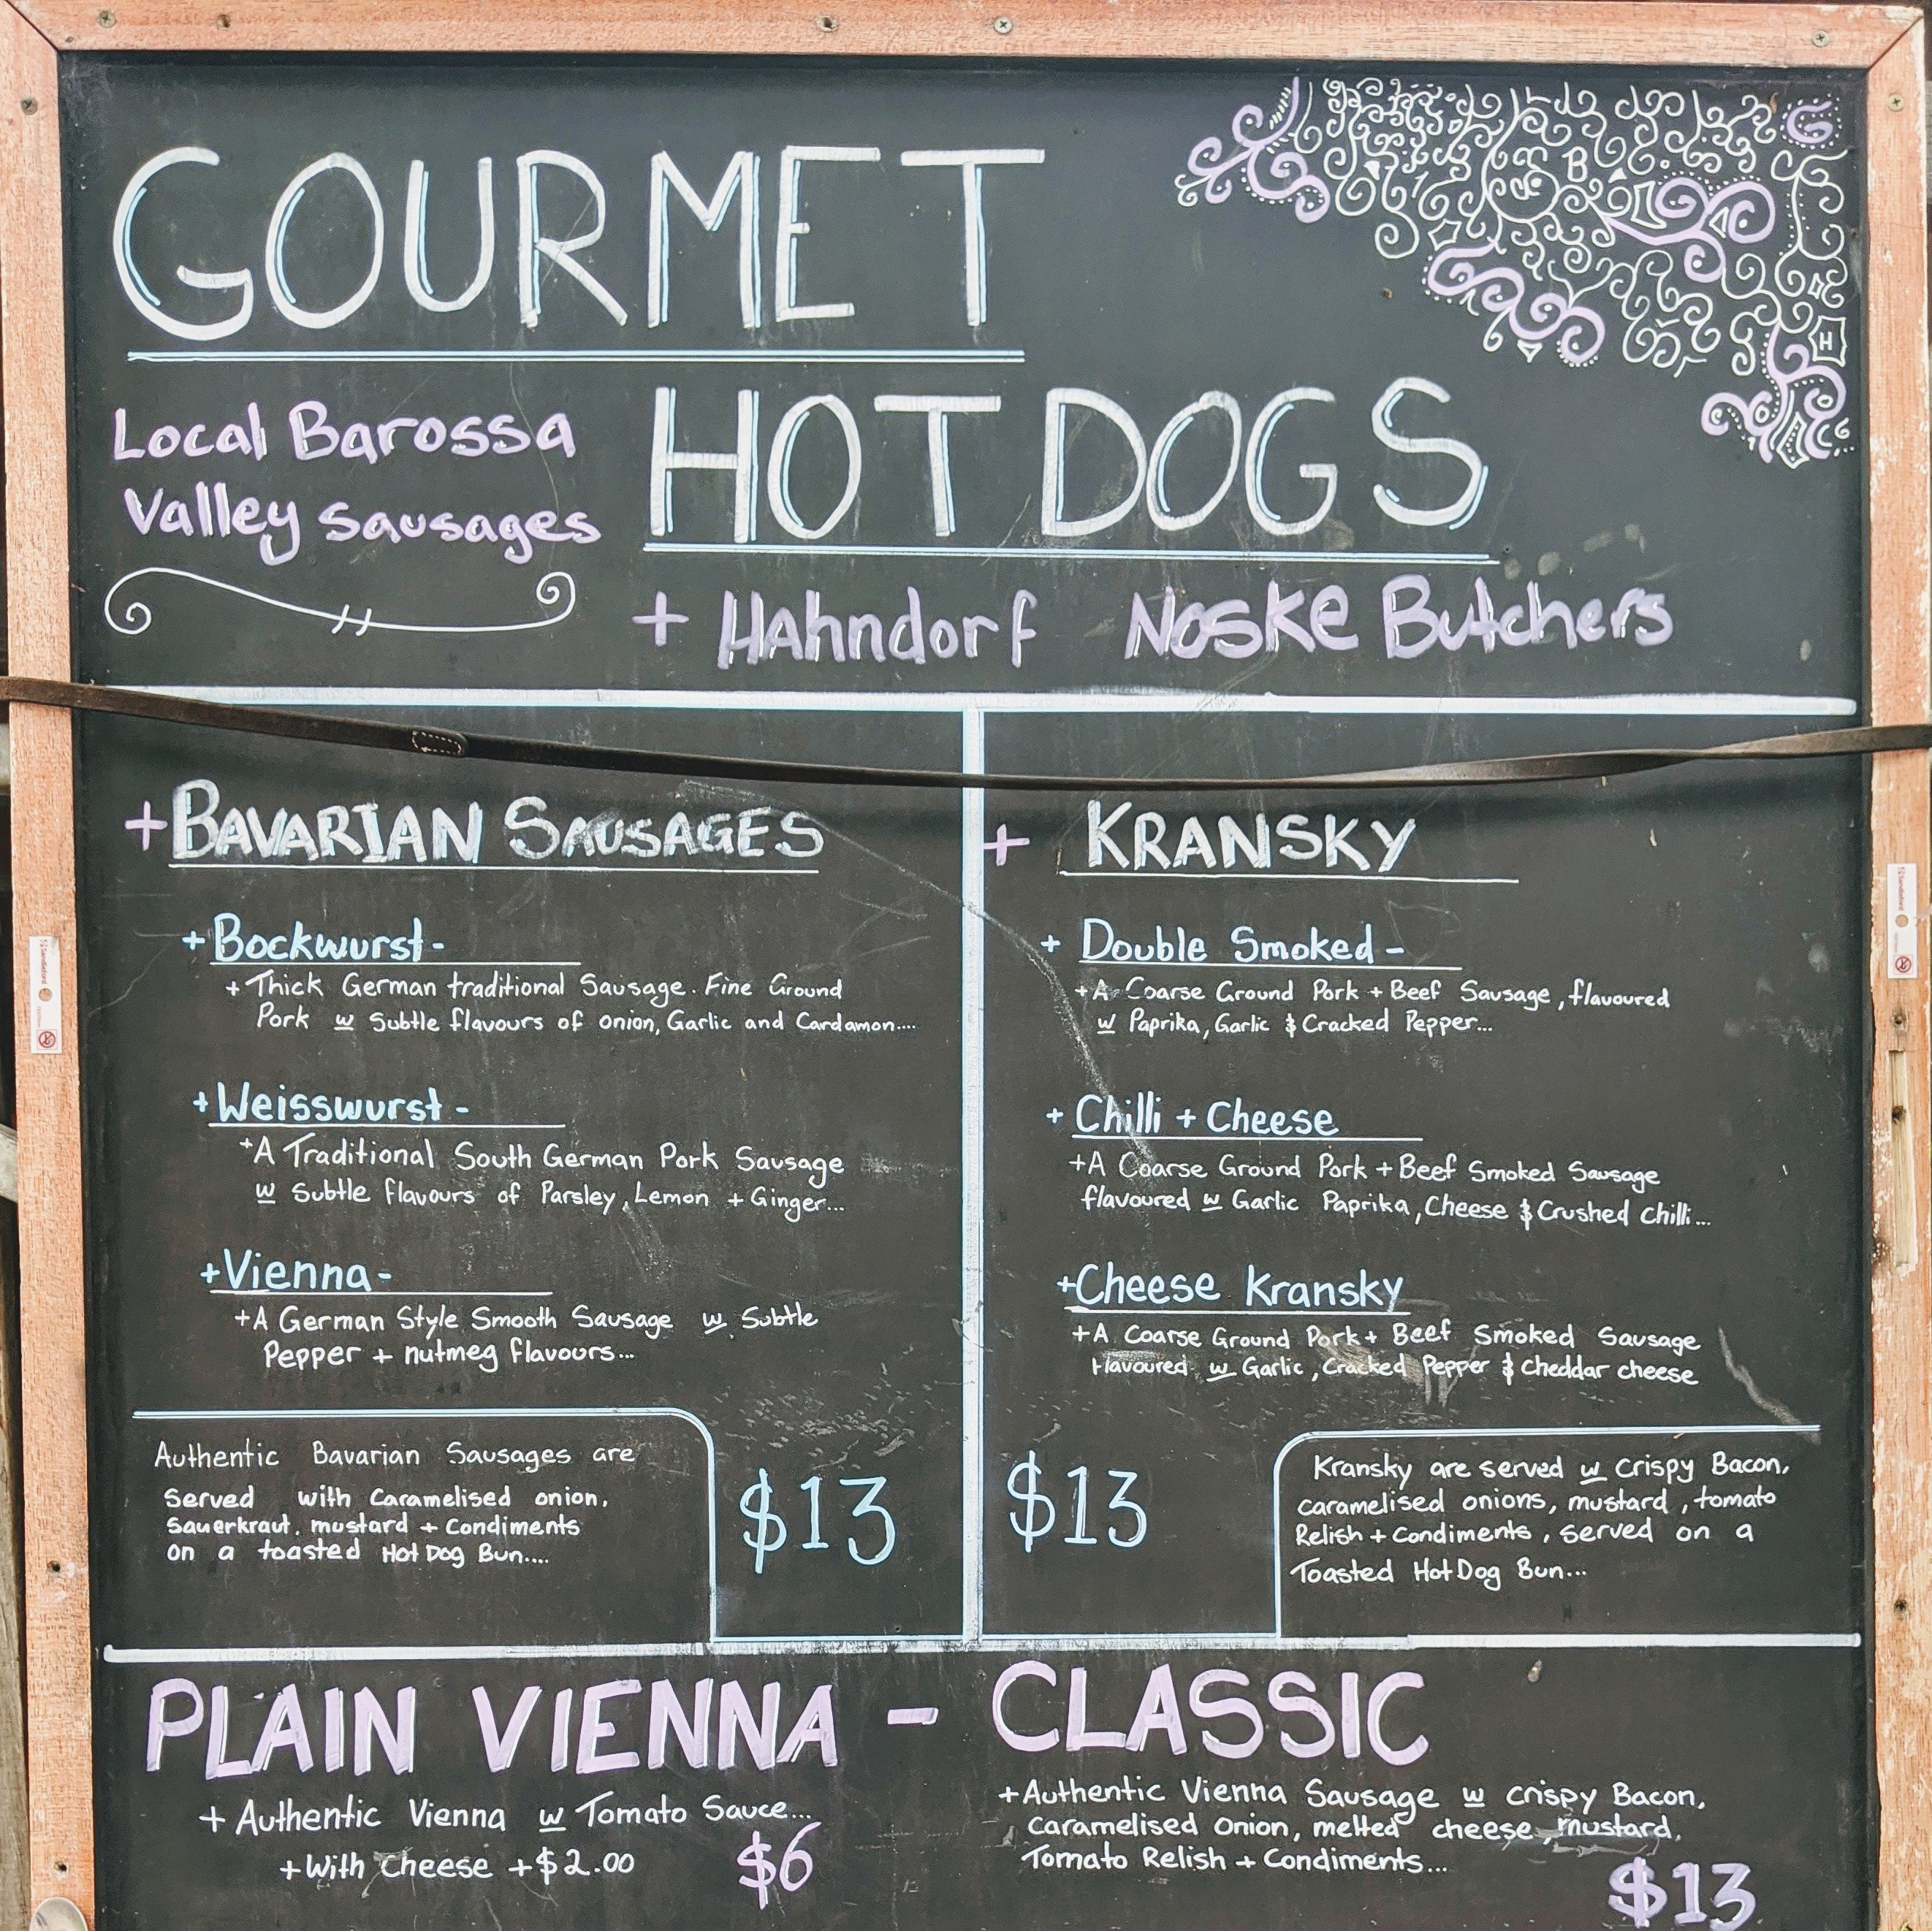 GOURMET
HOT DOGS
Local Barossa
Valley Sausages
+ Hahndorf Noske Butchers
+ BAVARIAN SAUSAGES
+ Bockwurst -
+ Thick German traditional Sausage. Fine Ground
Pork w Subtle flavours of onion, Garlic and Cardamon....
+ Weisswurst -
+ A Traditional South German Pork Sausage
w Subtle flavours of Parsley, Lemon + Ginger...
+ Vienna -
+ A German Style Smooth Sausage w Subtle
Pepper + nutmeg flavours...
Authentic Bavarian Sausages are
Served with Caramelised onion,
Sauerkraut, mustard + Condiments
on a toasted Hot Dog Bun....
$13
+ KRANSKY
+ Double Smoked -
+ A Coarse Ground Pork + Beef Sausage, flavoured
w Paprika, Garlic & Cracked Pepper...
+ Chilli + Cheese
+ A Coarse Ground Pork + Beef Smoked Sausage
flavoured w Garlic Paprika, Cheese & Crushed chilli...
+ Cheese Kransky
+ A Coarse Ground Pork + Beef Smoked Sausage
flavoured w Garlic, Cracked Pepper & Cheddar cheese
$13
Kransky are served w Crispy Bacon,
caramelised onions, mustard, tomato
Relish + Condiments, served on a
Toasted Hot Dog Bun...
PLAIN VIENNA - CLASSIC
+ Authentic Vienna w Tomato Sauce...
+ With Cheese + $2.00
$6
+ Authentic Vienna Sausage w crispy Bacon,
Caramelised Onion, melted cheese, mustard,
Tomato Relish + Condiments...
$13